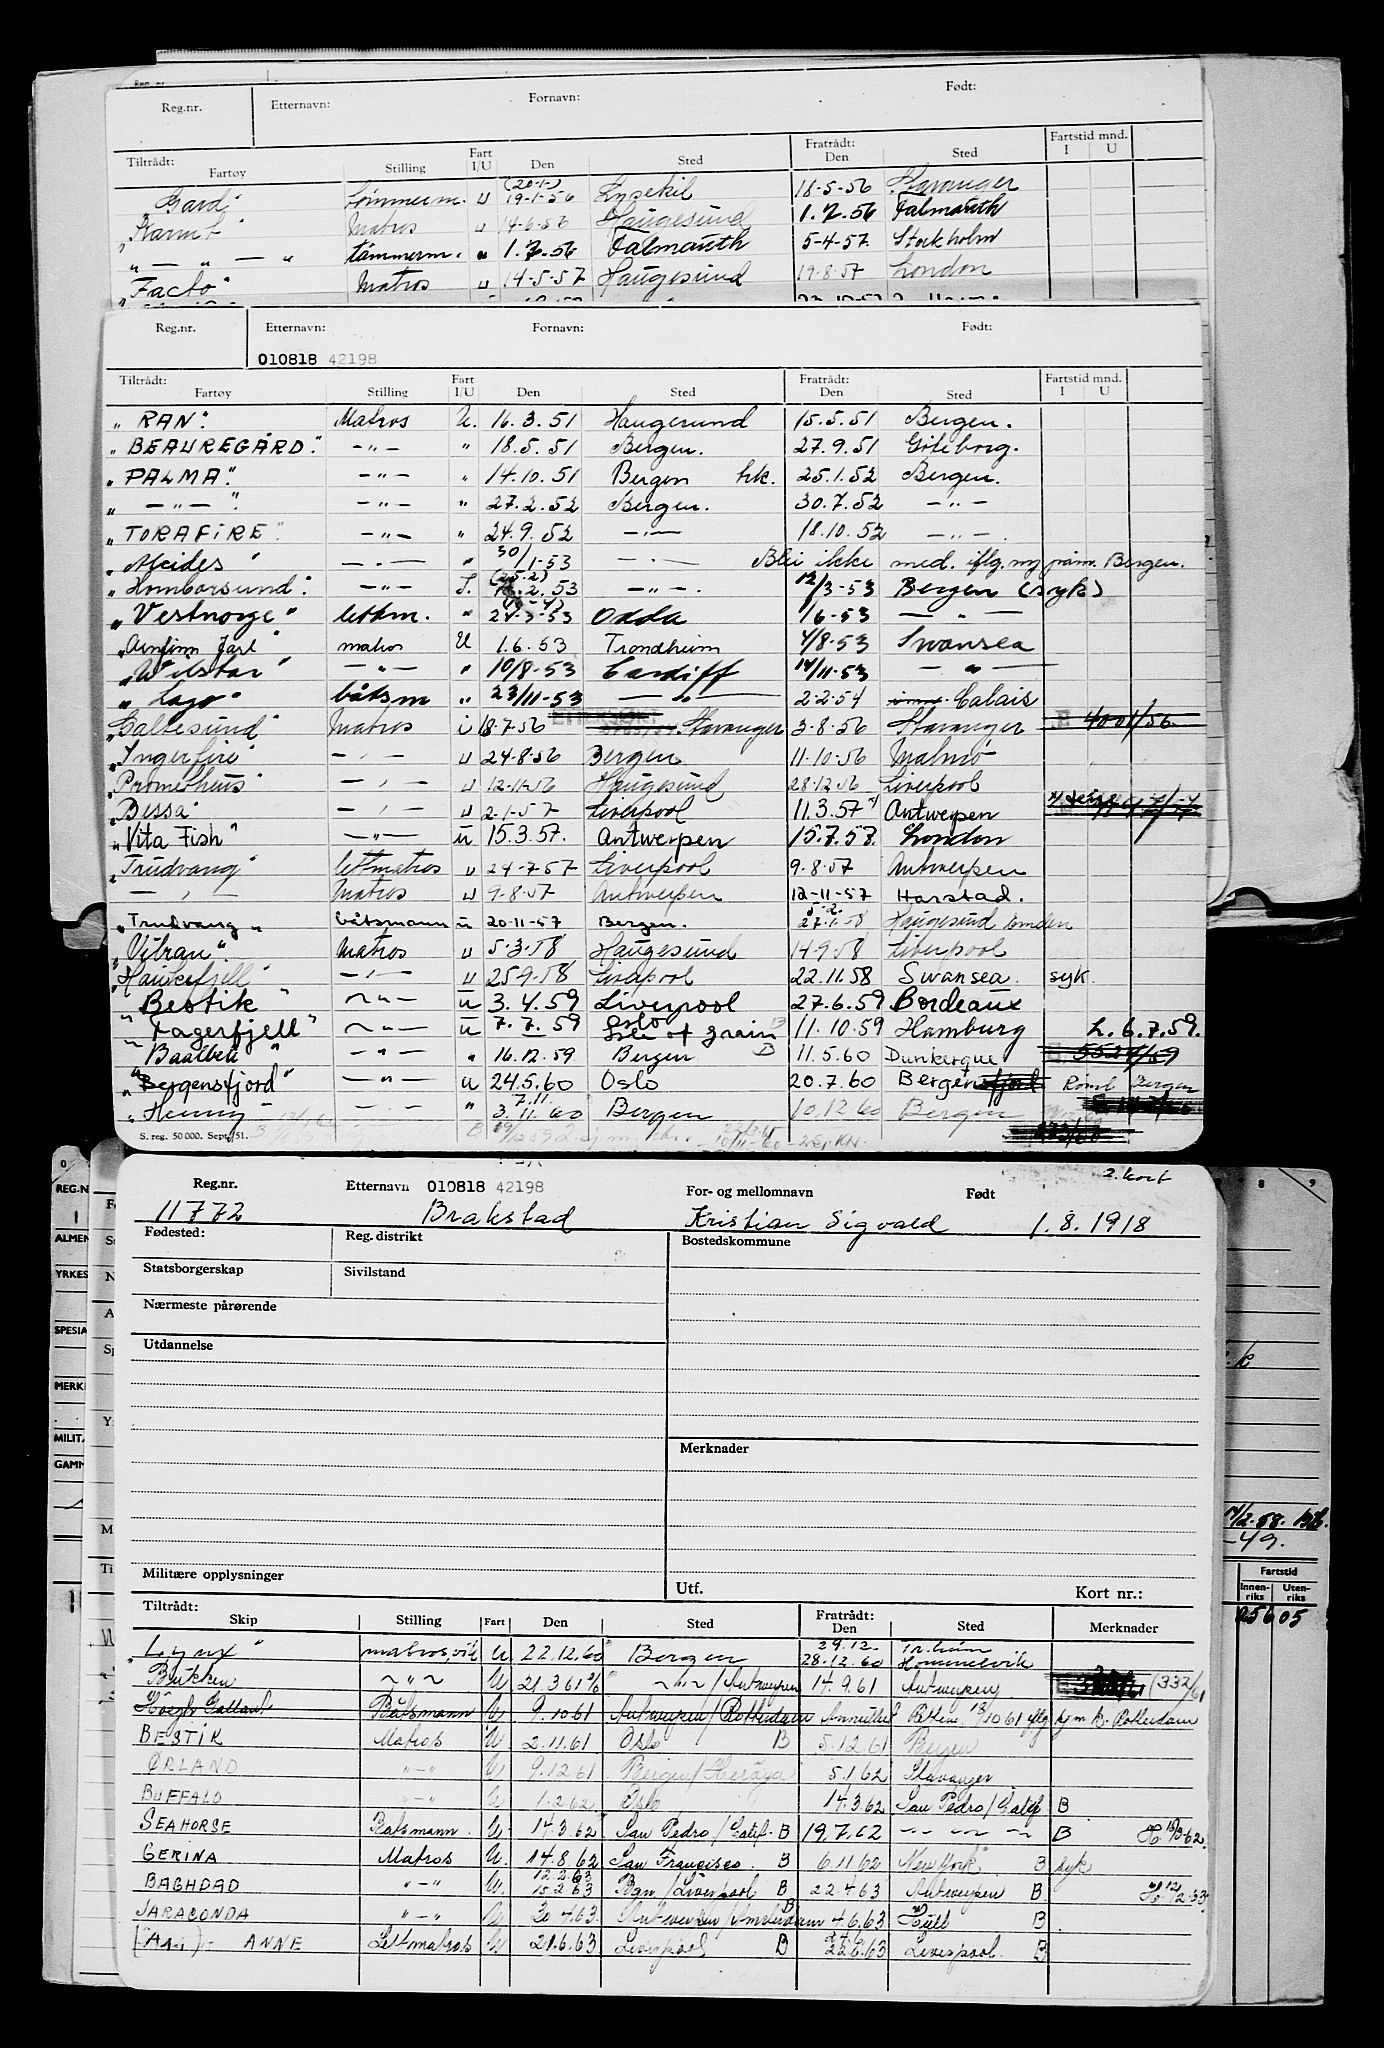 Reg.nr. Etternavn: Fornavn: Født:
Tiltrådt: Fartøy Stilling Fart I/U Den Sted Fratrådt: Den Sted Fartstid mnd. I U
(20-1-)
"Gard" tømmerm. u 19-1-56 Lysekil 18-5-56 Stavanger
"Karmt" Matros u 14-6-56 Haugesund 1.7.56 Falmouth
" — " — " tømmerm. " 1.7.56 Falmouth 5-4-57. Stockholm
"Facto" Matros u 14-5-57 Haugesund 19-8-57 London
Reg.nr. Etternavn: Fornavn: Født:
010818 42198
Tiltrådt: Fartøy Stilling Fart I/U Den Sted Fratrådt: Den Sted Fartstid mnd. I U
"RAN". Matros U. 16.3.51 Haugesund 15.5.51 Bergen.
"BEAUREGARD". —"— " 18.5.51 Bergen. 27.9.51 Göteborg.
"PALMA". —"— " 14.10.51 Bergen hk. 25.1.52 Bergen.
" —"— ". —"— " 27.2.52 Bergen. 30.7.52 —"—
"TORAFIRE" —"— " 24.9.52 —"— 18.10.52 —"—
"Alcides" —"— " 30/1-53 —"— Blei ikke med. iflg. mg. Bergen.
(25-2)
"Homborsund". —"— I. 2.53 —"— 12/3-53 Bergen (syk)
"Vestnorge" lettm. " 24-3-53 Odda 1/6-53 — " —
"Arnfinn Jarl" matros U 1.6.53 Trondheim 4/8-53 Swansea
"Wilstar" —"— " 10/8-53 Cardiff 14/11-53 — " —
"Lago" båtsm " 23/11-53 —"— 2-2-54 Calais
"Galtesund" Matros i 18-7-56 Stavanger 3-8-56 Stavanger 4001/56
"Ingerfire" —"— u 24-8-56 Bergen 11-10-56 Malmö
"Prometheus" —"— u 12-11-56 Haugesund 28-12-56 Liverpool
"Bessa" —"— u 2-1-57 Liverpool 11.3.57 Antwerpen
"Vita Fish" —"— u 15.3.57. Antwerpen 15.7.57. London
"Trudvang" lettmatros u 24-7-57 Liverpool 9-8-57 Antwerpen
— " — Matros u 9-8-57 Antwerpen 12-11-57 Harstad.
5-2
"Trudvang" båtsmann u 20-11-57 Bergen. 27-1-58 Haugesund Emden
"Vibran". Matros u 5-3-58 Haugesund 14-9-58 Liverpool
"Haukefjell" —"— u 25-9-58 Liverpool 22.11.58 Swansea. syk.
"Bestik" ~"— u 3.4.59 Liverpool 27.6.59 Bordeaux
"Fagerfjell" ~"— u 7.7.59 Oslo Isle of grain B 11.10.59 Hamburg h. 6.7.59.
"Baalbek" —"— " 16.12.59 Bergen B 11.5.60 Dunkerque 5524/59
"Bergensfjord" —"— u 24.5.60 Oslo 20.7.60 Bergen Bergen
7.11.
"Heimy" —"— " 3.11.60 Bergen 10.12.60 Bergen
S. reg. 50 000. Sept. 51.
2. kort
Reg.nr. Etternavn 010818 42198 For- og mellomnavn Født
11772 Brakstad Kristian Sigvald 1.8.1918
Fødested: Reg. distrikt Bostedskommune
Statsborgerskap Sivilstand
Nærmeste pårørende
Utdannelse
Merknader
Militære opplysninger Utf. Kort nr.:
Tiltrådt: Skip Stilling Fart Den Sted Fratrådt: Den Sted Merknader
29.12. Tr.heim
"Lynx" matros, vik U. 22.12.60 Bergen 28.12.60 Hommelvik
Brükken ~"~ U 21.3.61 ~"~ /Antwerpen 14.9.61 Antwerpen (332/61
Höegh Gallant Båtsmann U 9.10.61 Antwerpen/Rotterdam 13/10 61 iflg kjmk. Rotterdam
BESTIK Matros U 2.11.61 Oslo B 5.12.61 Bergen
ØRLAND "—" U 9.12.61 Bergen/Herøya 5.1.62 Stavanger
BUFFALO "—" U 1.2.62 Oslo 14.3.62 San Pedro/Calif B
SEAHORSE Båtsmann. U 14.3.62 San Pedro/Calif. B 19.7.62 ~ ~ ~ B
GERINA Matros U. 14.8.62 San Francisco. B 6.11.62 New York B syk
12.2.63
BAGHDAD "—" U. 15.2.63 Bgn/Liverpool B 22.4.63 Antwerpen B
JARACONDA "—" U 30.4.63. Antwerpen/Amsterdam B 4.6.63 Hull B
ANNE Lettmatros U 21.6.63 Liverpool B 22.6.63 Liverpool. B
REG.N
ALMEN
YRKES
SPESIA
MERKI
MILITÆ
GAMM
-49.
Fartstid
Innen-riks Uten-riks